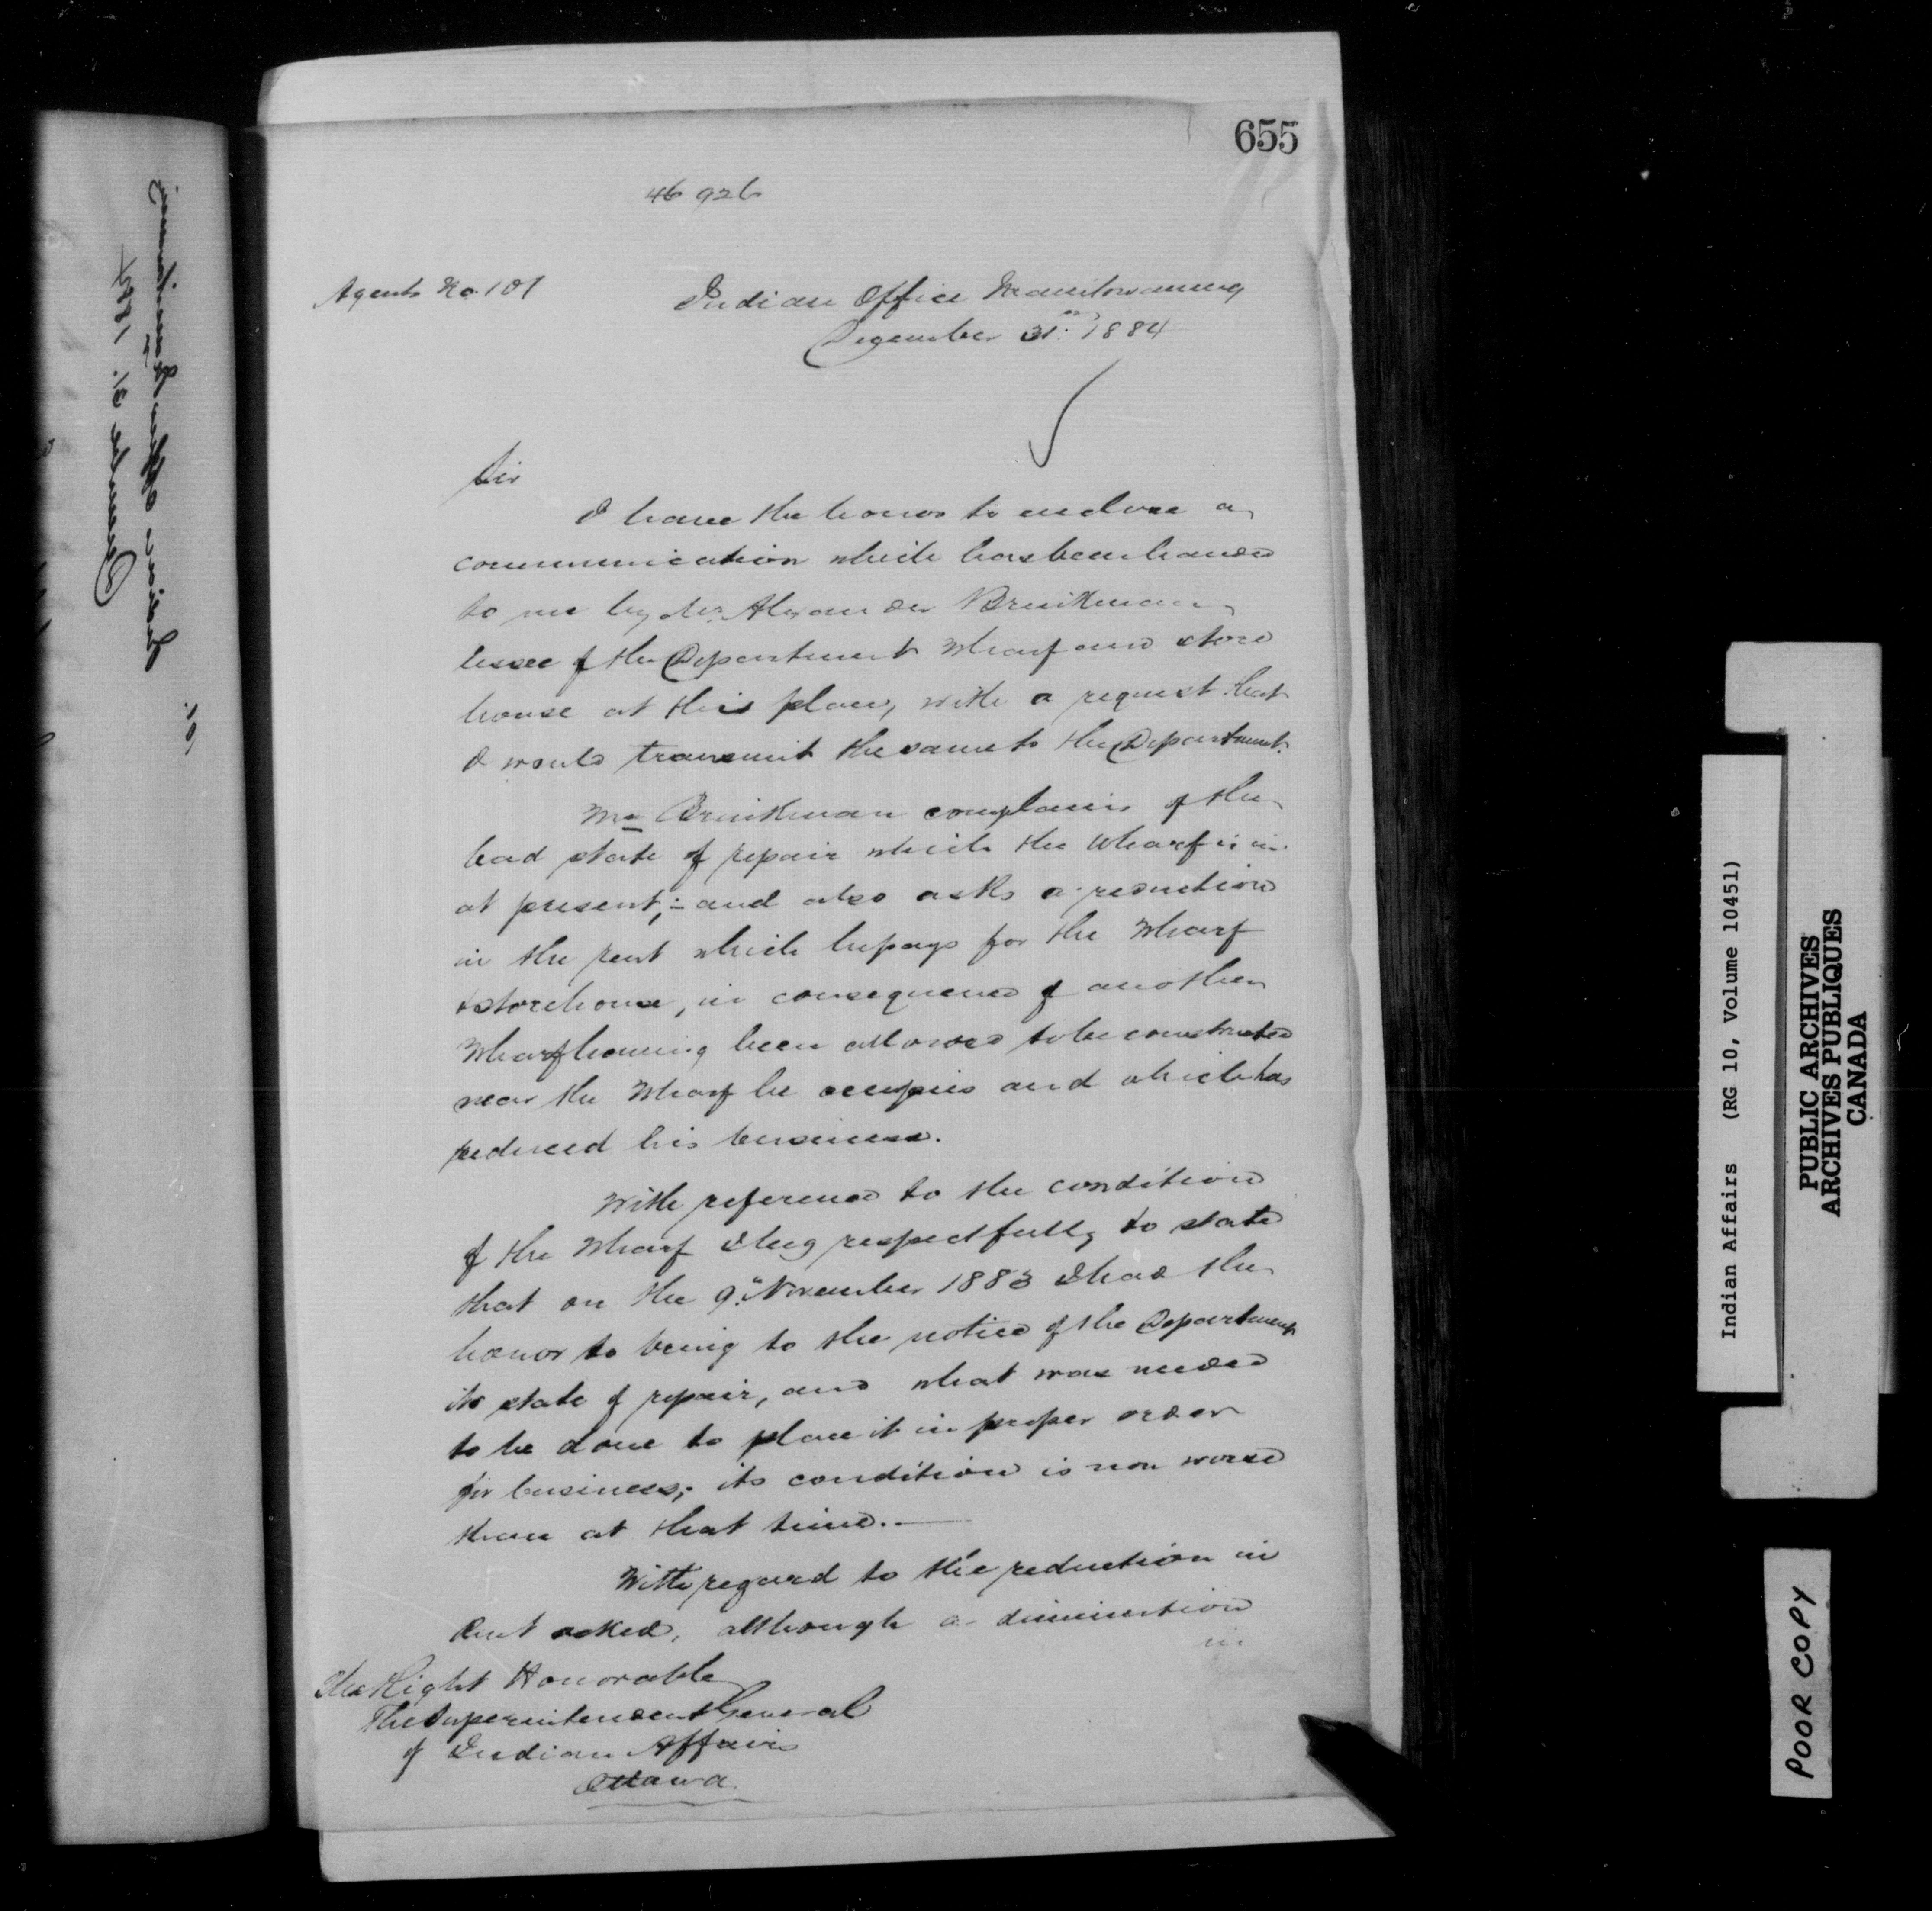 655
46926
Agents No. 101
Indian Office Manitowaning
December 31st 1884
Sir
I have the honor to enclose a
communication which has been handed
to me by Mr. Alexander Brinkman
lessee of the Department Wharf and store
house at this place, with a request that
I would transmit the same to the Department.
Mr Brinkman complains of the
bad state of repair which the Wharf is in
at present; - and also asks a reduction
in the rent which he pays for the Wharf
& storehouse, in consequence of another
Wharf having been allowed to be constructed
near the Wharf he occupies and which has
reduced his business.
With reference to the condition
of the Wharf I beg respectfully to state
that on the 9th November 1883 I had the
honor to bring to the notice of the Department
its state of repair, and what was needed
to be done to place it in proper order
for business; its condition is now worse
than at that time. —
With regard to the reduction in
Rent asked, although a diminution
in
The Right Honorable
The Superintendent General
of Indian Affairs
Ottawa
Indian Affairs (RG 10, Volume 10451)
PUBLIC ARCHIVES
ARCHIVES PUBLIQUES
CANADA
POOR COPY